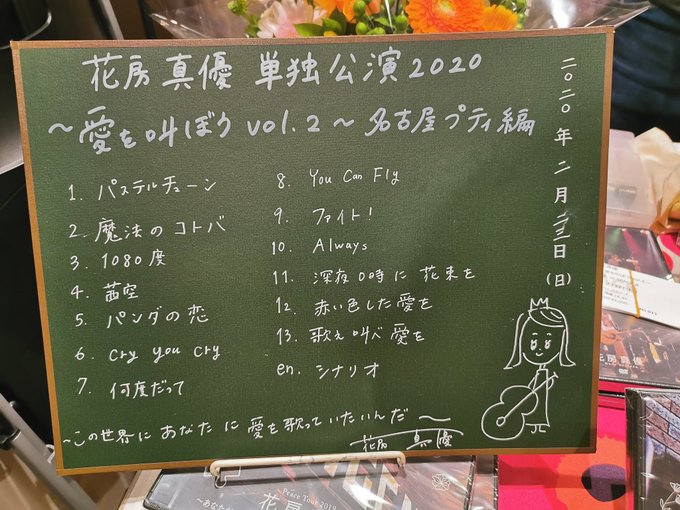 花房真優 単独公演2020
～愛を叫ぼう vol.2～名古屋プティ編
二〇二〇年二月二三日（日）
1. パステルチューン
2. 魔法のコトバ
3. 1080度
4. 茜空
5. パンダの恋
6. cry you cry
7. 何度だって
8. You Can Fly
9. ファイト！
10. Always
11. 深夜0時に花束を
12. 赤い色した愛を
13. 歌え叫べ愛を
en. シナリオ
～この世界にあなたに愛を歌っていたいんだ～
花房 真優
花房真優
DVD
Peace Tour 2019
花房